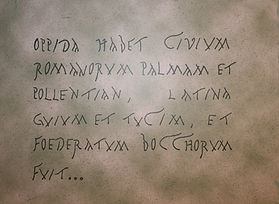 OPPIDA HABET CIVIVM
ROMANORVM PALMAM ET
POLLENTIAN, LATINA
GVIVM ET TVCIM, ET
FOEDERATVM BOCCHORVM
FVIT...